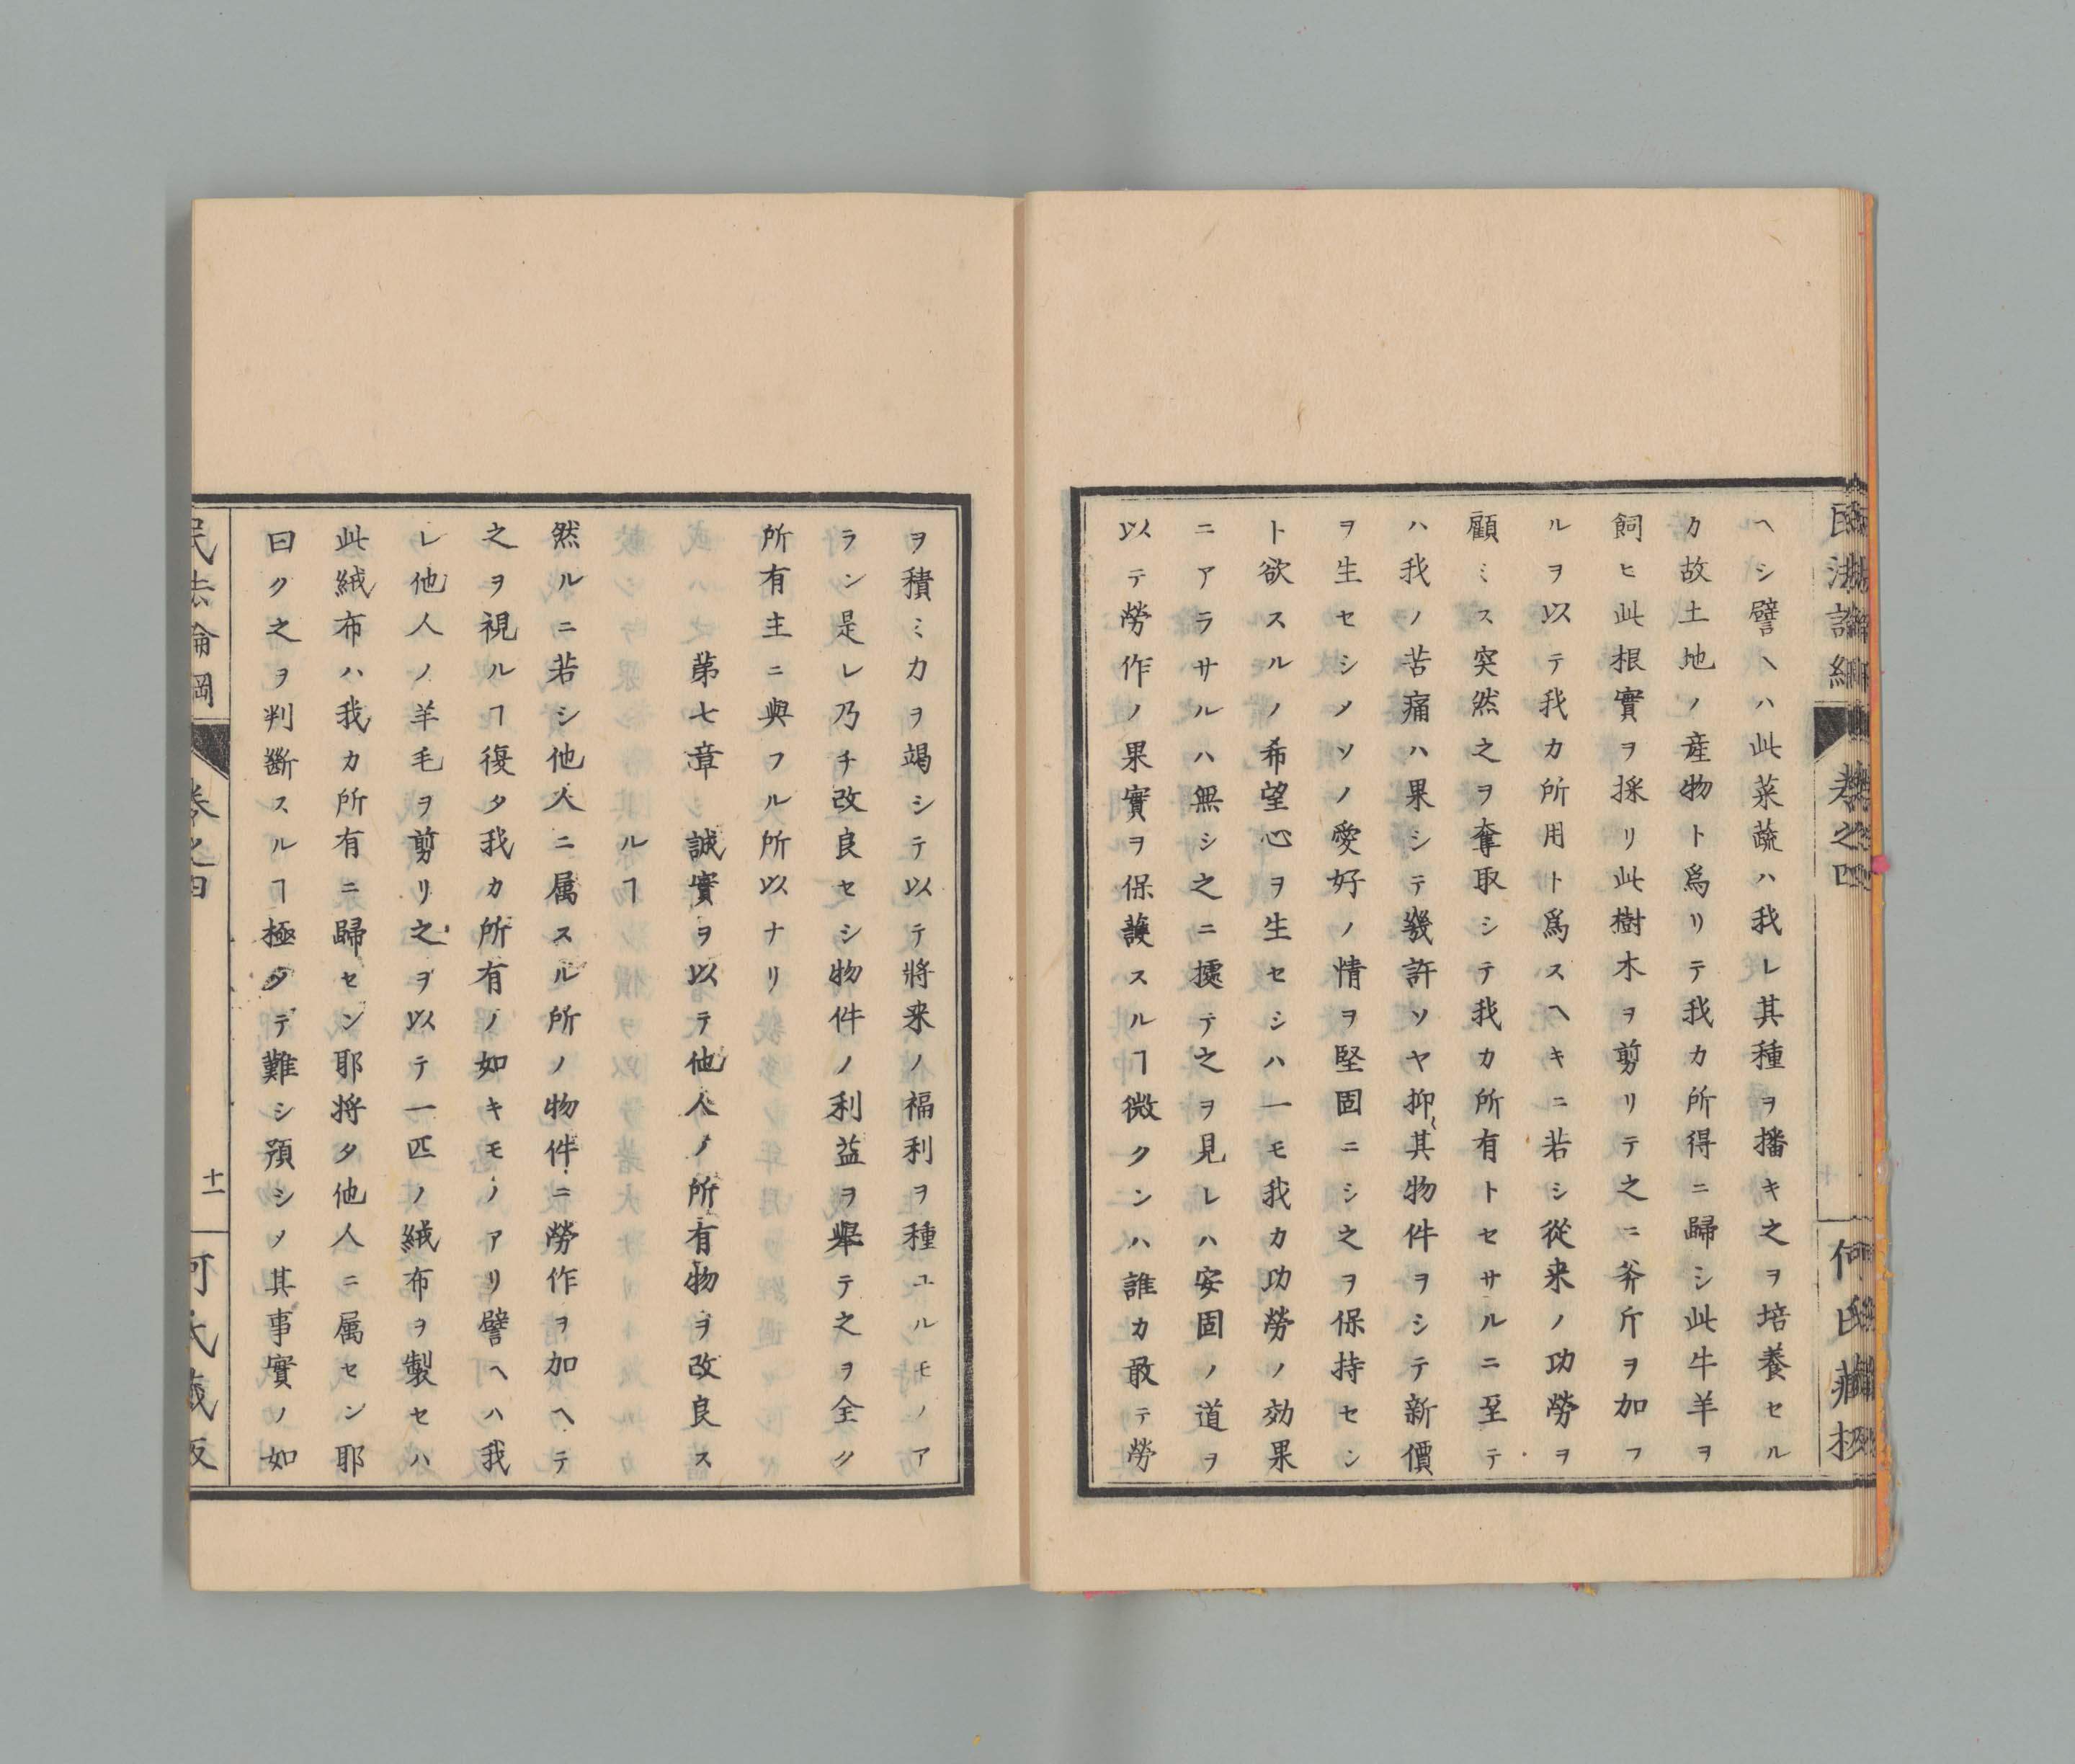 民法論綱 巻之四 何氏藏板
ヘシ譬ヘハ此菜蔬ハ我レ其種ヲ播キ之ヲ培養セル
カ故土地ノ産物ト爲リテ我カ所得ニ歸シ此牛羊ヲ
飼ヒ此根實ヲ採リ此樹木ヲ剪リテ之ニ斧斤ヲ加フ
ルヲ以テ我カ所用ト爲スヘキニ若シ從来ノ功勞ヲ
顧ミス突然之ヲ奪取シテ我カ所有トセサルニ至テ
ハ我ノ苦痛ハ果シテ幾許ソヤ抑〻其物件ヲシテ新價
ヲ生セシメソノ愛好ノ情ヲ堅固ニシ之ヲ保持セン
ト欲スルノ希望心ヲ生セシハ一モ我カ功勞ノ効果
ニアラサルハ無シ之ニ據テ之ヲ見レハ安固ノ道ヲ
以テ勞作ノ果實ヲ保護スルヿ微クンハ誰カ敢テ勞
ヲ積ミカヲ竭シテ以テ將来ノ福利ヲ種ユルモノア
ラン是レ乃チ改良セシ物件ノ利益ヲ擧テ之ヲ全ク
所有主ニ與フル所以ナリ
第七章 誠實ヲ以テ他人ノ所有物ヲ改良ス
ルヿ
然ルニ若シ他人ニ属スル所ノ物件ニ勞作ヲ加ヘテ
之ヲ視ルヿ復タ我カ所有ノ如キモノアリ譬ヘハ我
レ他人ノ羊毛ヲ剪リ之ヲ以テ一匹ノ絨布ヲ製セハ
此絨布ハ我カ所有ニ歸セン耶将タ他人ニ属セン耶
曰ク之ヲ判斷スルヿ極タテ難シ預シメ其事實ノ如
民法論綱 巻之四 十一 何氏藏版